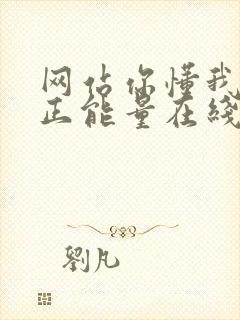 网站你懂我
正能量在线
劉凡